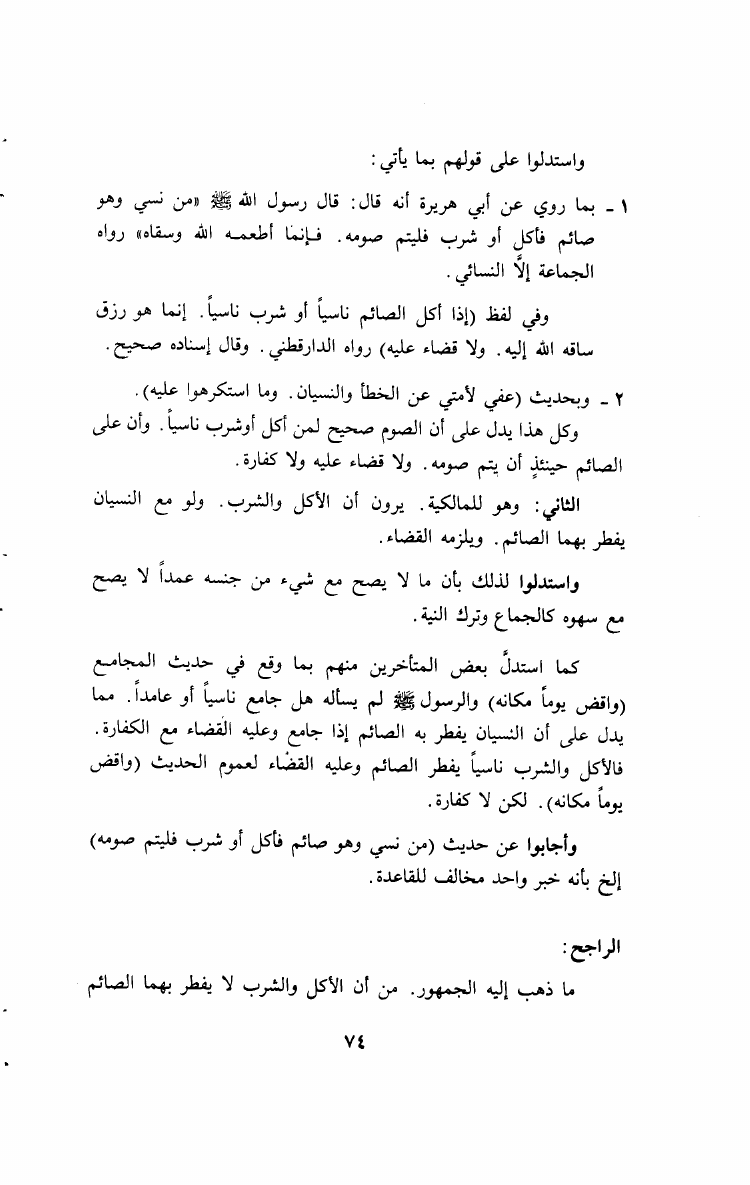 واستدلوا على قولهم بما يأتي:
١ - بما روي عن أبي هريرة أنه قال: قال رسول الله ﷺ «من نسي وهو
صائم فأكل أو شرب فليتم صومه. فإنما أطعمه الله وسقاه» رواه
الجماعة إلاَّ النسائي.
وفي لفظ (إذا أكل الصائم ناسياً أو شرب ناسياً. إنما هو رزق
ساقه الله إليه. ولا قضاء عليه) رواه الدارقطني. وقال إسناده صحيح.
٢ - وبحديث (عفي لأمتي عن الخطأ والنسيان. وما استكرهوا عليه).
وكل هذا يدل على أن الصوم صحيح لمن أكل أوشرب ناسياً. وأن على
الصائم حينئذٍ أن يتم صومه. ولا قضاء عليه ولا كفارة.
الثاني: وهو للمالكية. يرون أن الأكل والشرب. ولو مع النسيان
يفطر بهما الصائم. ويلزمه القضاء.
واستدلوا لذلك بأن ما لا يصح مع شيء من جنسه عمداً لا يصح
مع سهوه كالجماع وترك النية.
كما استدلَّ بعض المتأخرين منهم بما وقع في حديث المجامع
(واقض يوماً مكانه) والرسول ﷺ لم يسأله هل جامع ناسياً أو عامداً. مما
يدل على أن النسيان يفطر به الصائم إذا جامع وعليه القضاء مع الكفارة.
فالأكل والشرب ناسياً يفطر الصائم وعليه القضاء لعموم الحديث (واقض
يوماً مكانه). لكن لا كفارة.
وأجابوا عن حديث (من نسي وهو صائم فأكل أو شرب فليتم صومه)
إلخ بأنه خبر واحد مخالف للقاعدة.
الراجح:
ما ذهب إليه الجمهور. من أن الأكل والشرب لا يفطر بهما الصائم
٧٤